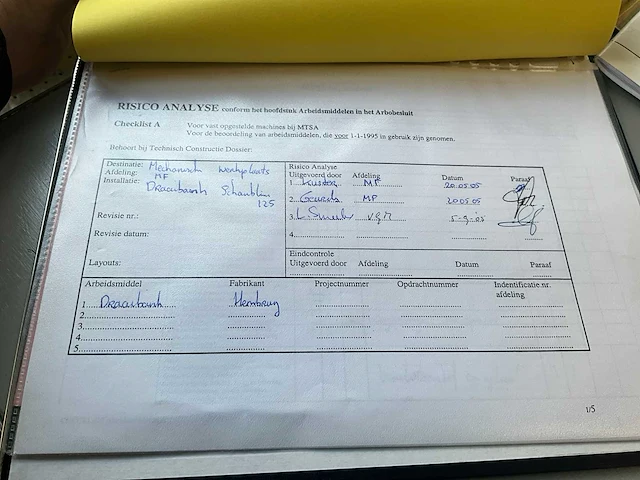 RISICO ANALYSE conform het hoofdstuk Arbeidsmiddelen in het Arbobesluit
Checklist A Voor vast opgestelde machines bij MTSA
Voor de beoordeling van arbeidsmiddelen, die voor 1-1-1995 in gebruik zijn genomen.
Behoort bij Technisch Constructie Dossier:
Destinatie: Mechanisch werkplaats
Afdeling: MF
Installatie: Draaibank Schaublin
125
Revisie nr.:
Revisie datum:
Layouts:
Risico Analyse
Uitgevoerd door Afdeling Datum Paraaf
1. Kusters MF 20.05.05
2. Geurts MF 20.05.05
3. VGM 5-9-05
4.
Eindcontrole
Uitgevoerd door Afdeling Datum Paraaf
Arbeidsmiddel Fabrikant Projectnummer Opdrachtnummer Indentificatie.nr.
afdeling
1. Draaibank Hembrug
2.
3.
4.
5.
1/5